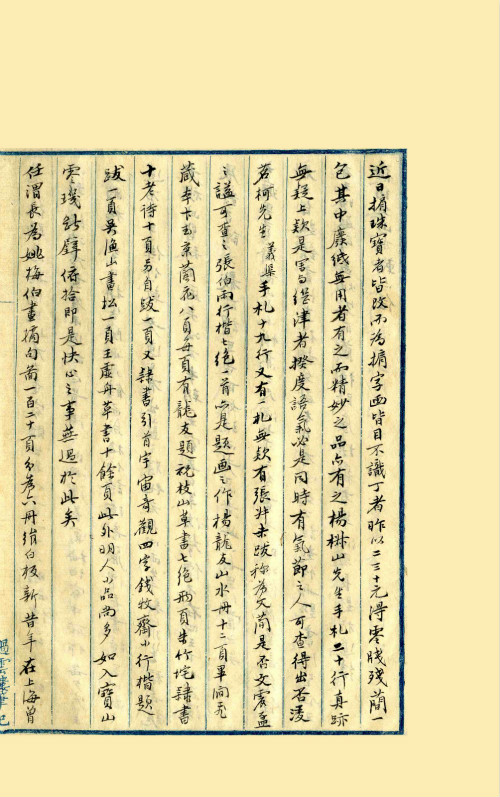 近日掮珠寶者皆改而為掮字畫皆目不識丁者昨以二三十元得零牋殘蕑一
包其中廢紙無用者有之而精妙之品亦有之楊椒山先生手札二十行真跡
無疑上款是害與繼津者揆度語氣必是同時有氣節之人可查得出否淩
茗柯先生義渠手札十九行又有一札無款有張叔未跋稱為文蕑是否文震孟
之謚可查之張伯雨行楷七絕一首亦是題画之作楊龍友山水冊十二頁單閣老
藏本卞玉京蘭花八頁每頁有龍友題祝枝山草書七絕兩頁朱竹垞隸書
十老詩十頁另自跋一頁又隸書引首宇宙奇觀四字錢牧齋小行楷題
跋一頁吳漁山畫松一頁王虛舟草書十餘頁此外明人小品尚多如入寶山
零璣斷璧俯拾即是快心之事無過於此矣
任渭長為姚梅伯畫摘句啚一百二十頁分為六冊絹白板新昔年在上海曾
過雲樓筆記